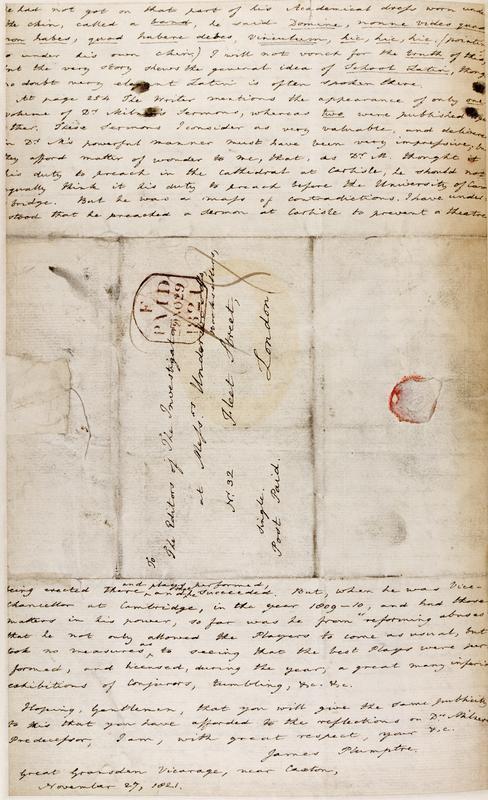 e had not got on that part of his Academical dress worn under
the chin, called a band, he said Domine, nonne vides quod
non habes, quod habere debes, Vinculum, hic, hic, hic, (pointing
to under his own chin;) I will not vouch for the truth of this
but the very story shews the general idea of School Latin, though
no doubt very elegant Latin is often spoken there.
At page 254 The Writer mentions the appearance of only one
volume of Dr. Milner's Sermons, whereas two were published
These Sermons I consider as very valuable, and delivered
in Dr. M's powerful manner must have been very impressive, but
they afford matter of wonder to me, that, as Dr. M. thought it
his duty to preach in the Cathedral at Carlisle, he should not
equally think it his duty to preach before the University of Cam
bridge. But he was a mass of contradictions. I have under-
stood that he preached a sermon at Carlisle to prevent a theatre
F
PAID
29 NO 29
1821
To
The Editors of The Investigator
at Messrs.
Booksellers,
No. 32 Fleet Street,
London
Single.
Post Paid.
being erected there, and plays performed, and he succeeded. But, when he was Vice-
Chancellor at Cambridge, in the year 1809-10, and had those
matters in his power, so far was he from "reforming abuses
that he not only allowed the Players to come as usual, but
took no measures as to seeing that the best Plays were per
formed, and licensed, during the year, a great many inferior
exhibitions of Conjurors, Tumbling, &c. &c.
Hoping, Gentlemen, that you will give the same publicity
to this that you have afforded to the reflections on Dr. Milner's
Predecessor, I am, with great respect, your &c.
James Plumptre.
Great Gransden Vicarage, near Caxton,
November 27, 1821.